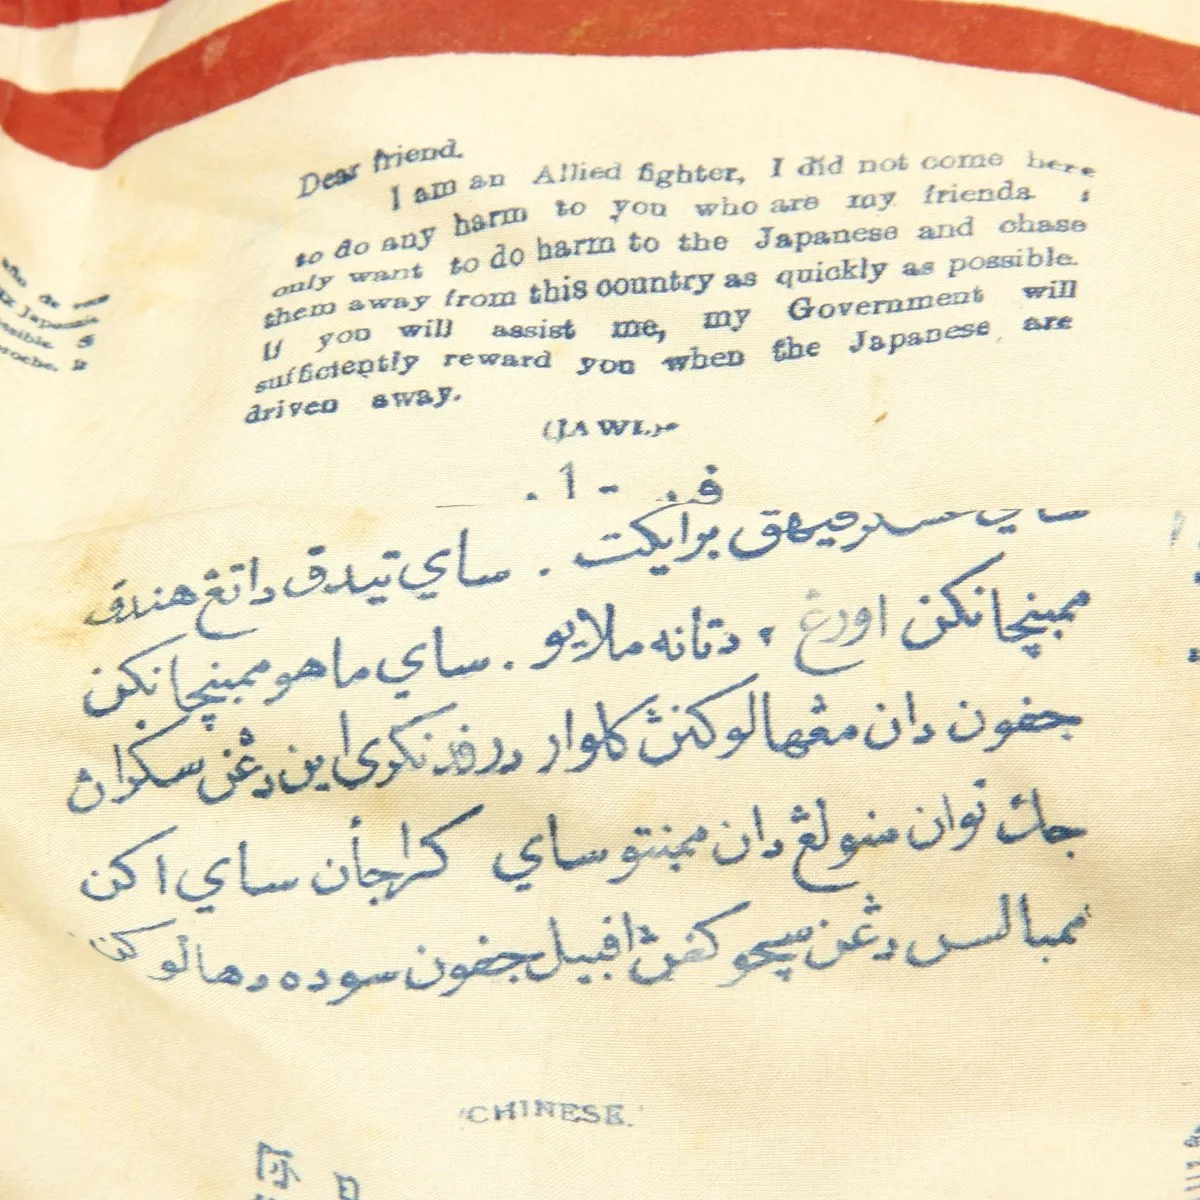 Dear friend.
I am an Allied fighter, I did not come here
to do any harm to you who are my friends
only want to do harm to the Japanese and chase
them away from this country as quickly as possible.
If you will assist me, my Government will
sufficiently reward you when the Japanese are
driven away.
(JAWI.)
برايکت . ساي تيدق داتڠ هندق
ممبينچانکن اورڠ ٢ دتانه ملايو . ساي ماهو ممبينچانکن
جفون دان مڠهالوکنڽ کلوار درفد نکري اين دڠن سکراڽ
توان منولڠ دان ممبنتو ساي کراجأن ساي اکن
ممبالس دڠن سچوکفڽ افبيل جفون سوده دهالوکن
CHINESE.